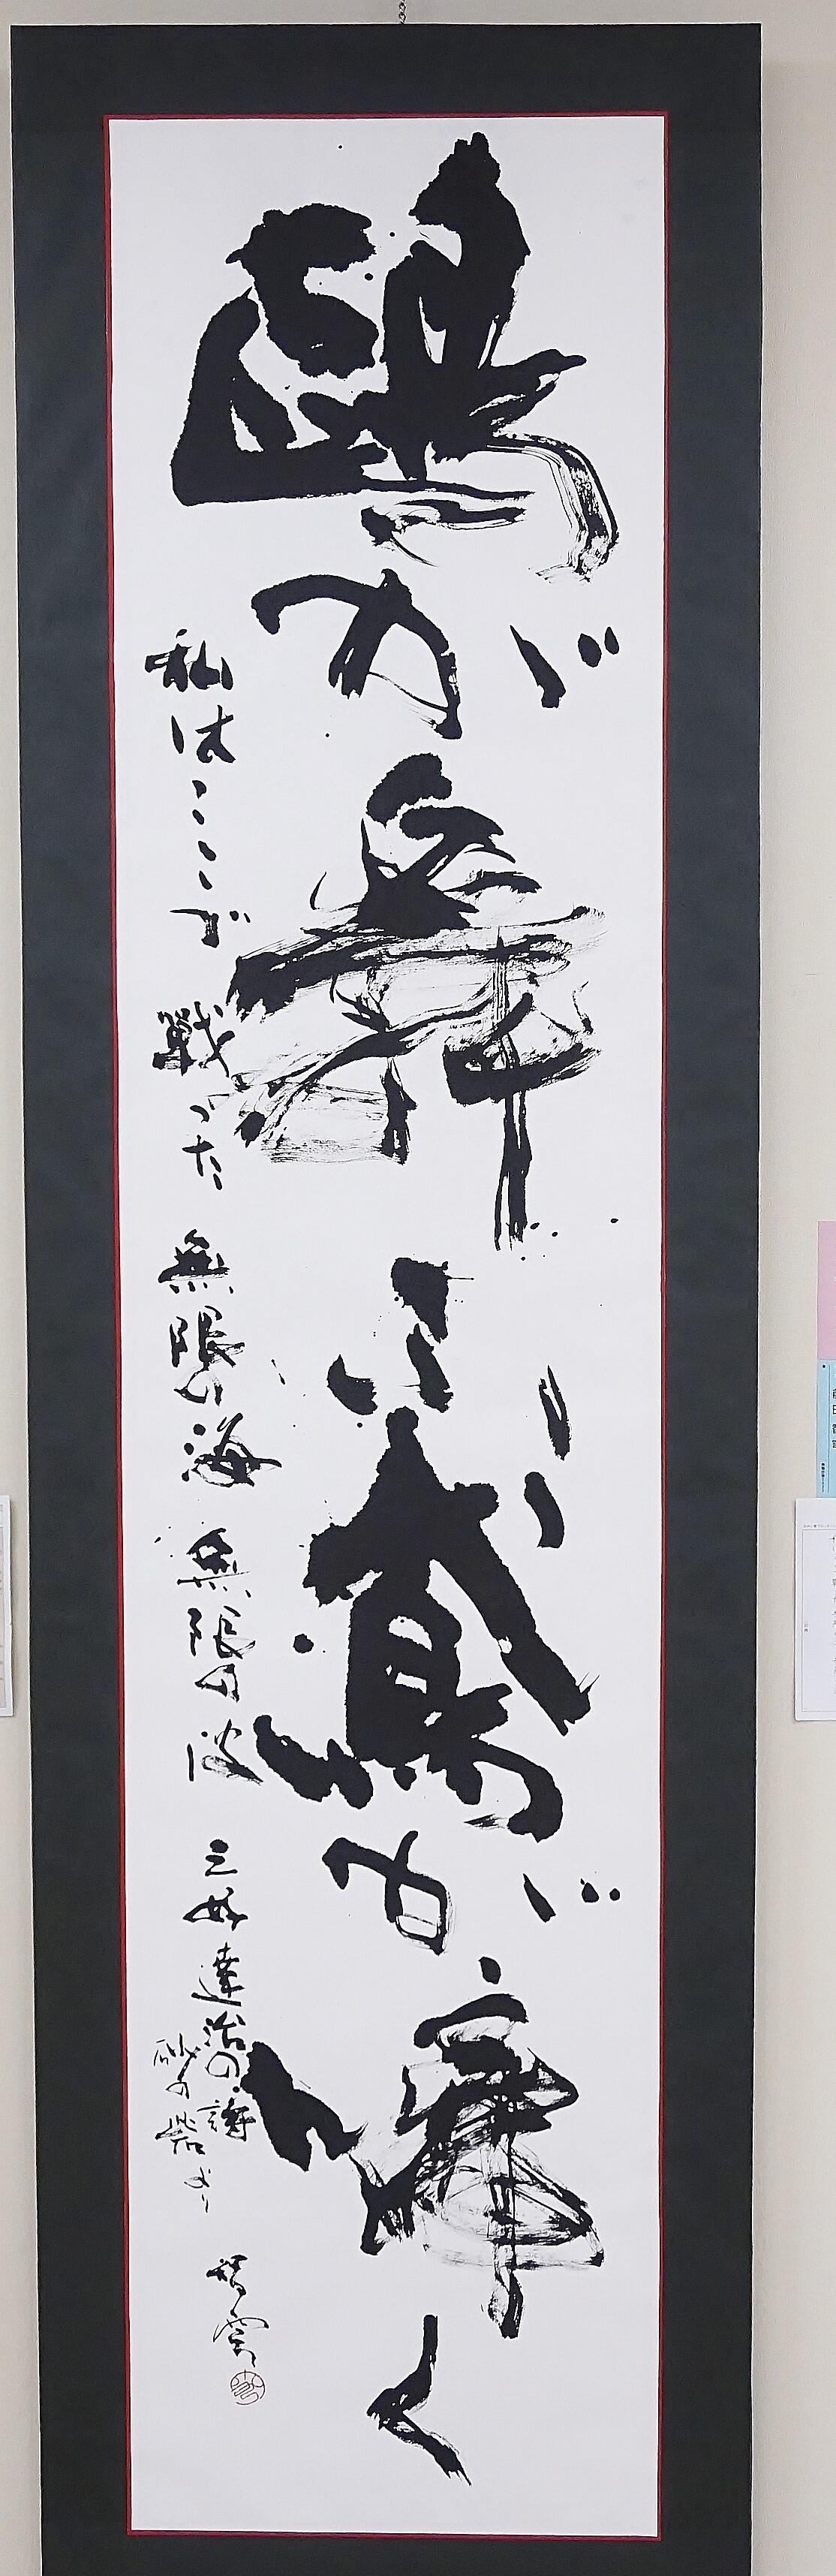 鷗が舞ふ鳶が啼く
私はここで戦った 無限の海 無限の波 三好達治の詩
砂の砦より